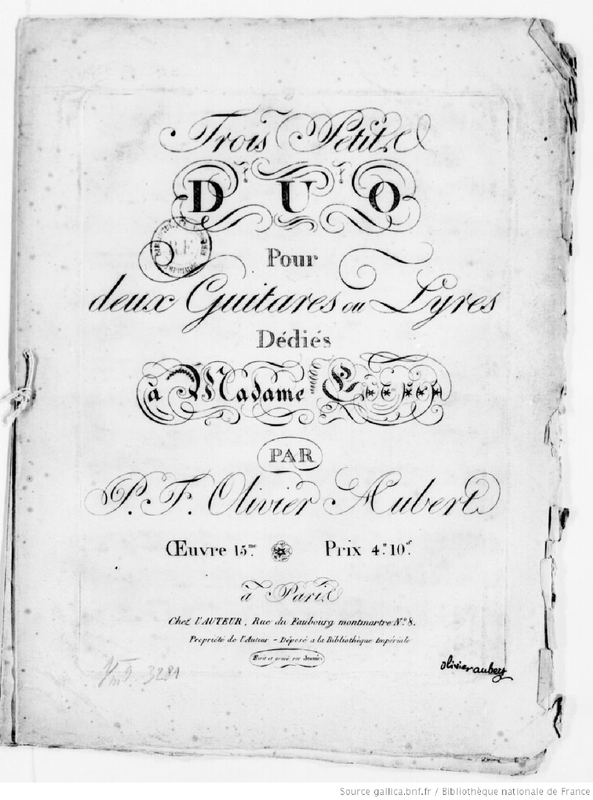 Trois Petits
DUO
Pour
deux Guitares ou Lyres
Dédiés
à Madame
PAR
P. F. Olivier Aubert
Œuvre 15.me Prix 4.# 10.s
à Paris
Chez l'AUTEUR, Rue du Faubourg montmartre N.o 8.
Propriété de l'Auteur - Déposé à la Bibliothèque Impériale
Ecrit et gravé par
olivier aubert
3281
R.F.
Source gallica.bnf.fr / Bibliothèque nationale de France